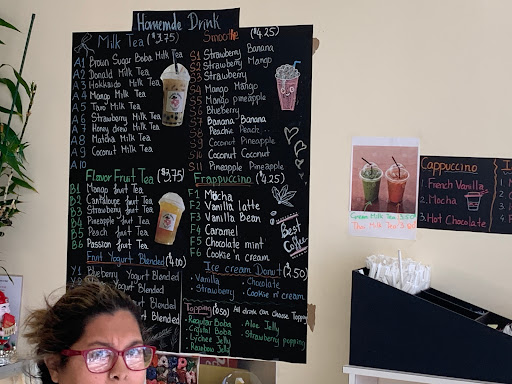 Homemde Drink
Milk Tea ($3.75)
A1 Brown Sugar Boba Milk Tea
A2 Donald Milk Tea
A3 Hokkaido Milk Tea
A4 Mango Milk Tea
A5 Taro Milk Tea
A6 Strawberry Milk Tea
A7 Honey drew Milk Tea
A8 Matcha Milk Tea
A9 Coconut Milk Tea
A10
Flavor Fruit Tea ($3,75
B1 Mango fruit Tea
B2 Cantaloupe fruit Tea
B3 Strawberry fruit Tea
B4 Pineapple fruit Tea
B5 Peach fruit Tea
B6 Passion fruit Tea
Fruit Yogurt Blended ($4.00)
Y1 Blueberry Yogurt Blended
Yogurt Blended
Yogurt Blended
Blended
Smoothie ($4,25)
S1 Strawberry Banana
S2 Strawberry Mango
S3 Strawberry
S4 Mango Mango
S5 Mango pineapple
S6 Blueberry
S7 Banana-Banana
S8 Peachie Peach
S9 Coconut Pineapple
Coconut Coconut
S11 Pineapple Pineapple
Frappuccino ($4,25
F1 Mocha
F2 Vanilla latte
F3 Vanilla Bean
F4 Caramel
F5 Chocolate mint
F6 Cookie'n cream
Best Coffee
Ice cream Donut ($2,50
- Vanilla - Chocolate
- Strawberry - Cookie n' cream
Topping ($0.50) All drink can Choose Topping
- Regular Boba - Aloe Jelly
- Crystal Boba - Strawberry popping
- Lychee Jelly
- Rainbow Jelly
Green Milk Tea 3,00
Thai Milk Tea 3,00
Cappuccino
1. French Vanilla
2. Mocha
3. Hot Chocolate